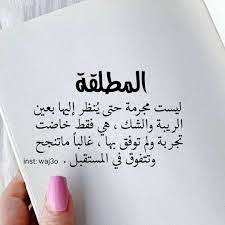 المطلقة
ليست مجرمة حتى يُنظر إليها بعين
الريبة والشك ، هي فقط خاضت
تجربة ولم توفق بها ، غالباً ماتنجح
وتتفوق في المستقبل .
inst: waj3o